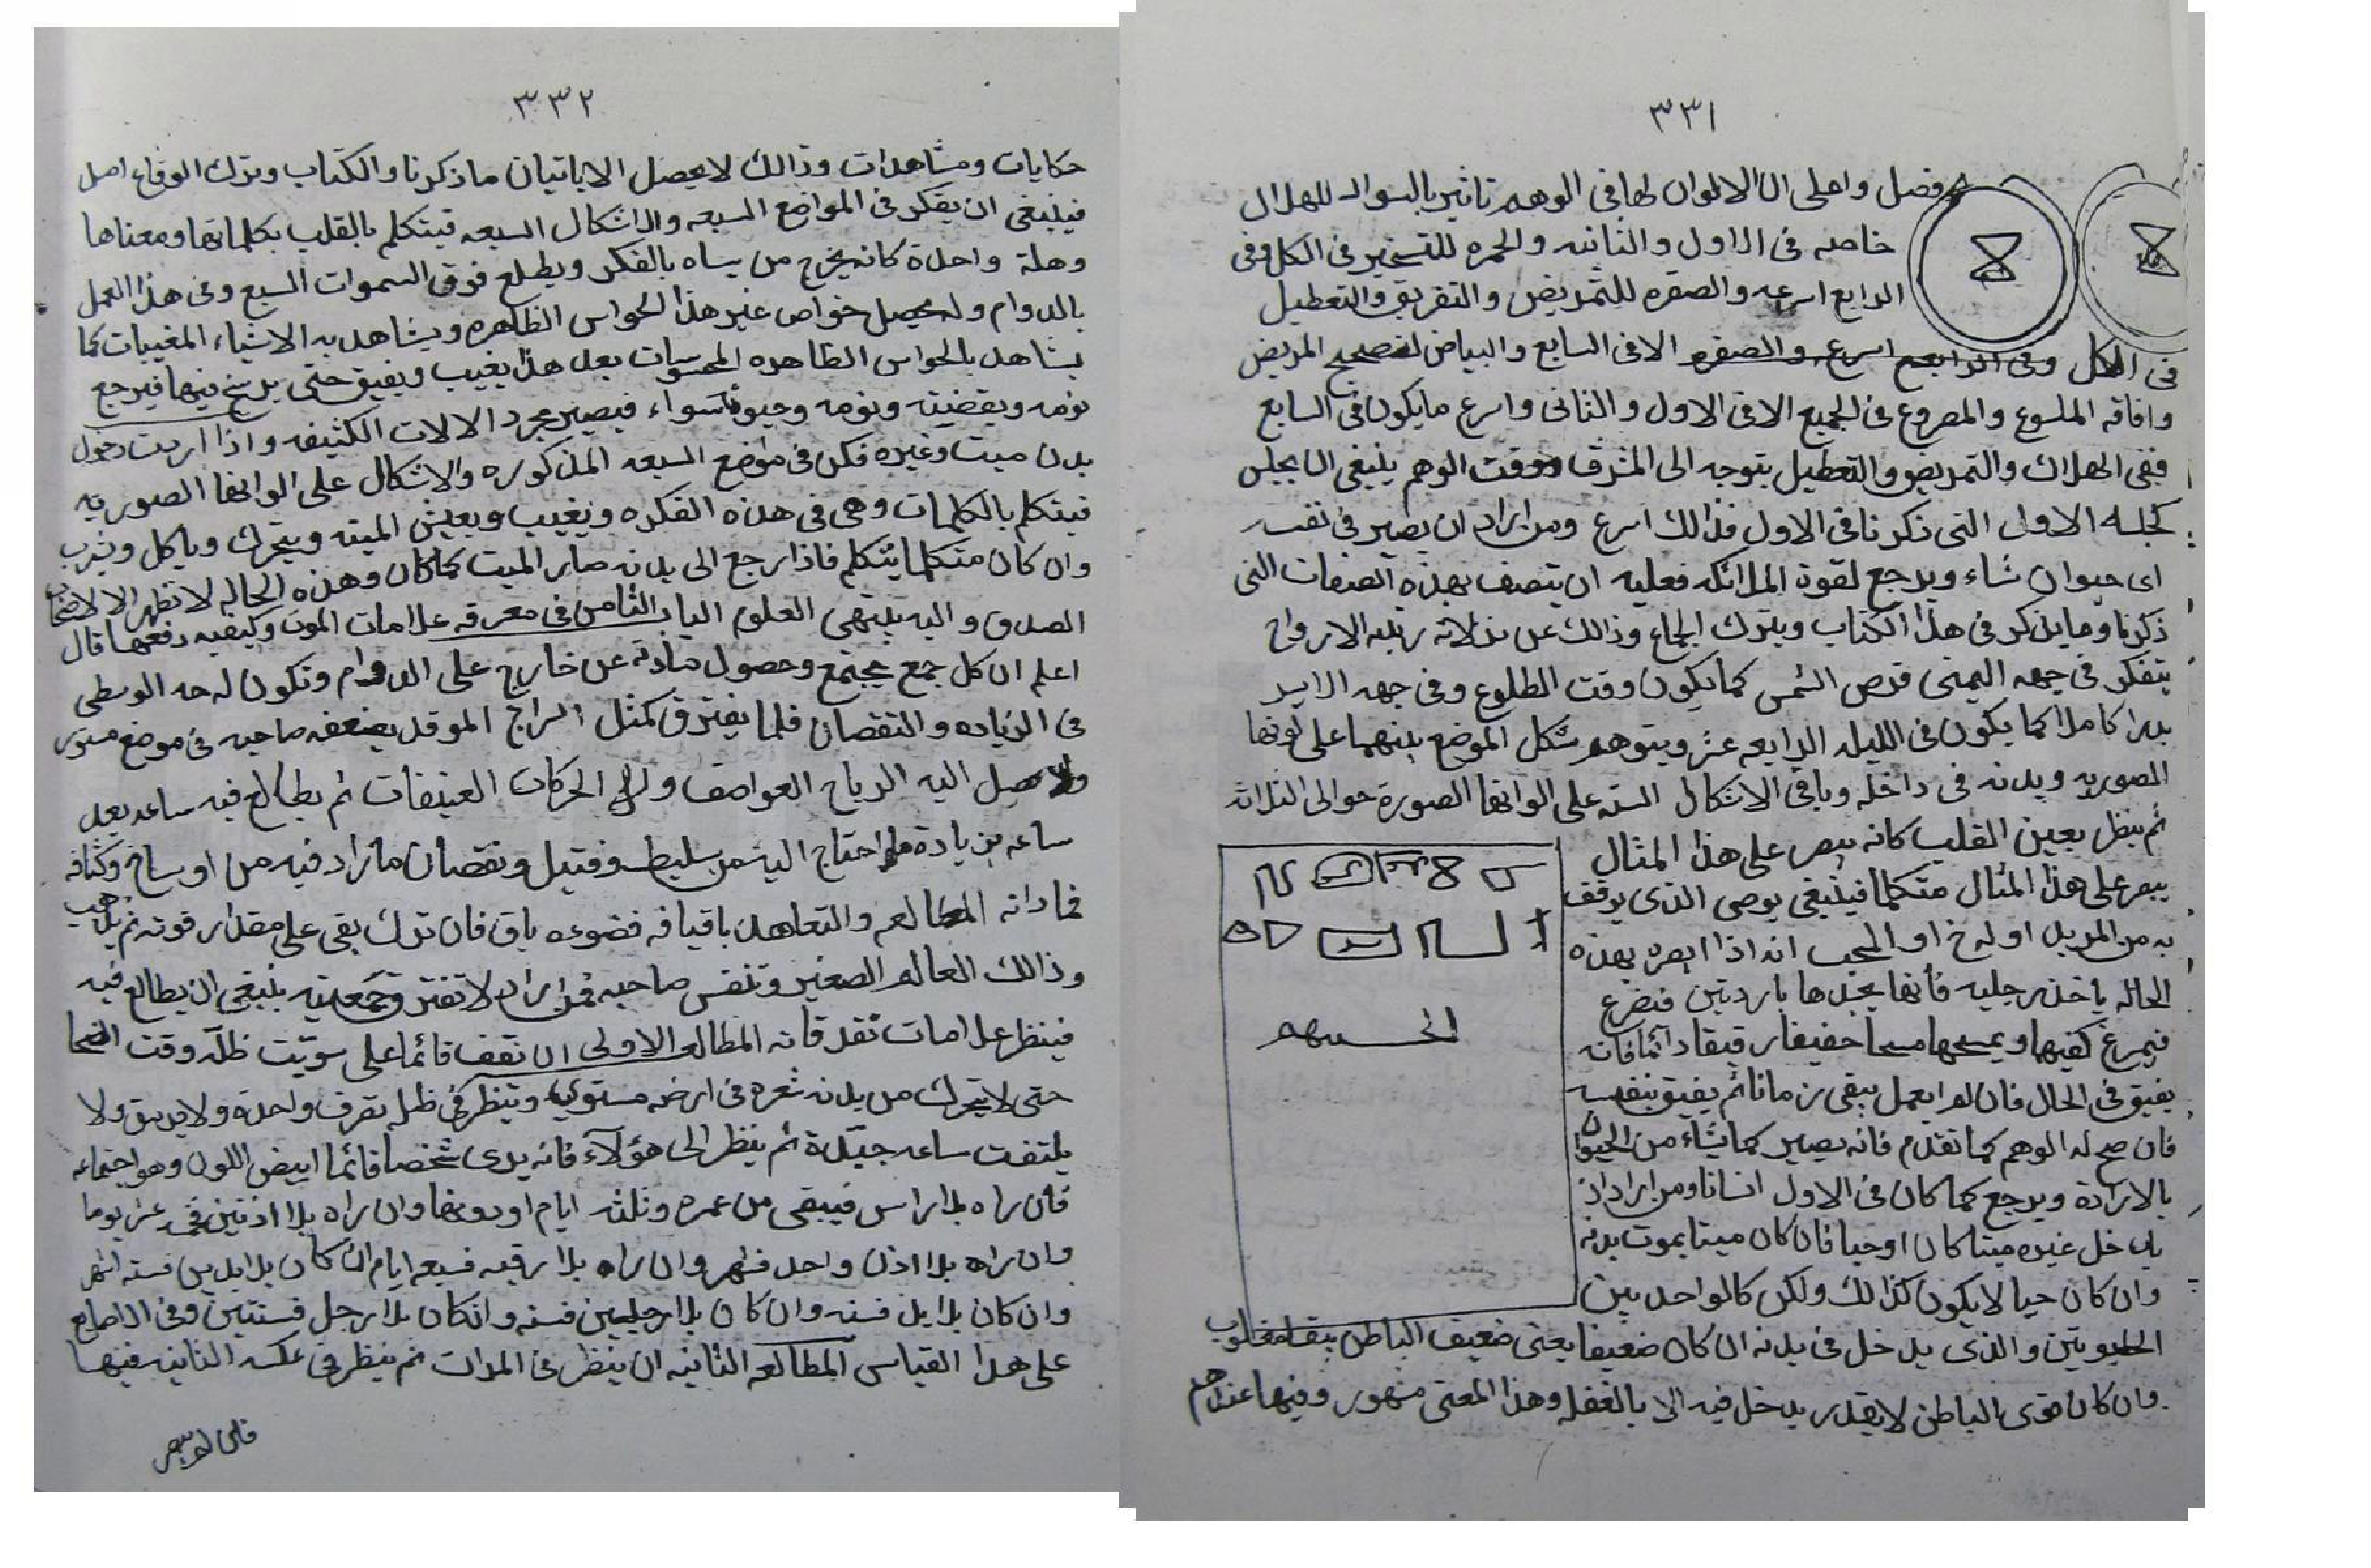 ٣٣١
فصل واعلم ان الالوان لها فى الوهم تاثير بالسواد للهلاك
خاصه فى الاول والثانيه والحمره للتسخير فى الكل وفى
الرابع اسرعه والصفره للتمريض والتفريق والتعطيل
فى الكل وفى الرابع اسرع والصفره الا فى السابع والبياض لتصحيح المريض
وافاقه الملسوع والمصروع فى الجميع الا فى الاول والثانى واسرع مايكون فى السابع
ففى الهلاك والتمريض والتعطيل يتوجه الى المشرف ووقت الوهم ينبغى ان يجلس
كجلسه الاول التى ذكرنا فى الاول فذالك اسرع ومن اراد ان يصير فى نفسه
اى حيوان شاء ويرجع لقوة الملائكه فعليه ان يتصف بهذه الصفات التى
ذكرنا وما يذكر فى هذا الكتاب ويترك الجماع وذالك عن ثلاثه الارواح
يتفكر فى جهه اليمنى قرص الشمس كما يكون وقت الطلوع وفى جهه الايسر
بدرا كاملا كما يكون فى الليله الرابعه عشر ويتوهم شكل الموضع بينهما على لونها
الصوريه وبدنه فى داخله وباقى الاشكال السته على الوانها الصورة حوالى الثلاثه
ثم ينظر بعين القلب كانه يبصر على هذا المثال
يبصر على هذا المثال متكاملا فينبغى يوصى الذى يوقف
به من المريد او له خ او المحب انه اذا ابصره بهذه
الحاله ياخذ رجليه فانها يجدها باردتين فتضرع
فيمرغ كفيها ويمسحها مسحا خفيفا رقيقا دائما فانه
يفيق فى الحال فان لم يعمل يبقى زمانا ثم يفيق بنفسه
فان صح له الوهم كما تقدم فانه يصير كما يشاء من الحيوان
بالارادة ويرجع كما كان فى الاول انسانا ومن اراد ان
يدخل غيره ميتا كان او حيا فان كان ميتا يموت بدنه
وان كان حيا لا يكون كذالك ولكن كالواحد بين
الحيوتين والذى يدخل فى بدنه ان كان ضعيفا يعنى ضعيف الباطن يبقا مغلوب
وان كان قوى الباطن لا يقدر يدخل فيه الا بالغفله وهذا المعنى مشهور وفيها عندهم
٣٣٢
حكايات ومشاهدات وذالك لا يحصل الا باتيان ما ذكرنا والكتاب وترك الوقاع اصل
فينبغى ان يفكر فى المواضع السبعه والاشكال السبعه فيتكلم بالقلب بكلماتها ومعناها
وهلة واحدة كانه يخرج من بساه بالفكر ويطلع فوق السموات السبع وفى هذا العمل
بالدوام وله يحصل خواص غير هذا الحواس الظاهره ويشاهد به الاشياء المغيبات كما
يشاهد بالحواس الظاهره المحسوسات بعد هذا يغيب ويفيق حتى يرسخ فيها فيرجع
نومه ويقضيته ونومه وحيوته سواء فيصير مجرد الالات الكثيفه واذا اردت دخول
بدن ميت وغيره فكن فى مواضع السبعه المذكوره والاشكال على الوانها الصوريه
فيتكلم بالكلمات وهى فى هذه الفكره ويغيب ويعيش الميته ويتحرك وياكل ويشرب
وان كان متكلما يتكلم فاذا رجع الى بدنه صار الميت كما كان وهذه الحاله لا تظهر الا لاصحاب
الصدق واليه ينتهى العلوم الباب الثامن فى معرفه علامات الموت وكيفيه دفعها قال
اعلم ان كل جمع يجتمع وحصول مادته عن خارج على الدوام وتكون له حد الوسطى
فى الزياده والنقصان فلما يفترق كمثل السراج الموقد يضعفه صاحبه فى موضع مستور
ولا يصل اليه الرياح العواصف ولا الحركات العنيفات ثم يطالع فيه ساعه بعد
ساعه بزيادة ما احتاج اليه من سليط وفتيل ونقصان مازاد فيه من اوساخ وكثافه
فما دامه المطالعه والتعاهد باقيا فه فضوءه باق فان ترك بقى على مقدار قوته ثم يذهب
وذالك العالم الصغير وتنفس صاحبه فمن اراد لا تفتر وجمعيته ينبغى ان يطالع فيه
فينظر علامات تقدقاته المطالعه الاولى ان تقف قائما على سويت ظله وقت الضحا
حتى لا يتحرك من بدنه شعره فى ارض مستويه وينظر فى ظله بقرف واحدة ولا يريق ولا
يلتفت ساعه جيدة ثم ينظر الى هؤلآء فانه يرى شخصا قائما ابيض اللون وهو اجتماعه
فان راه بلا راس فيبقى من عمره وثلثه ايام او دونها وان راه بلا اذنين فخمسه عشر يوما
وان راه بلا اذن واحد فشهر وان راه بلا رقبه فسبعه ايام وان كان بلا يدين فسته اشهر
وان كان بلا يد فسنه وان كان بلا رجلين فسنه وانكان بلا رجل فسنتين وفى الاصابع
على هذا القياس المطالعه الثانيه ان ينظر فى المرات ثم ينظر فى عكسه الثانيه فيها
فان لم يبصر